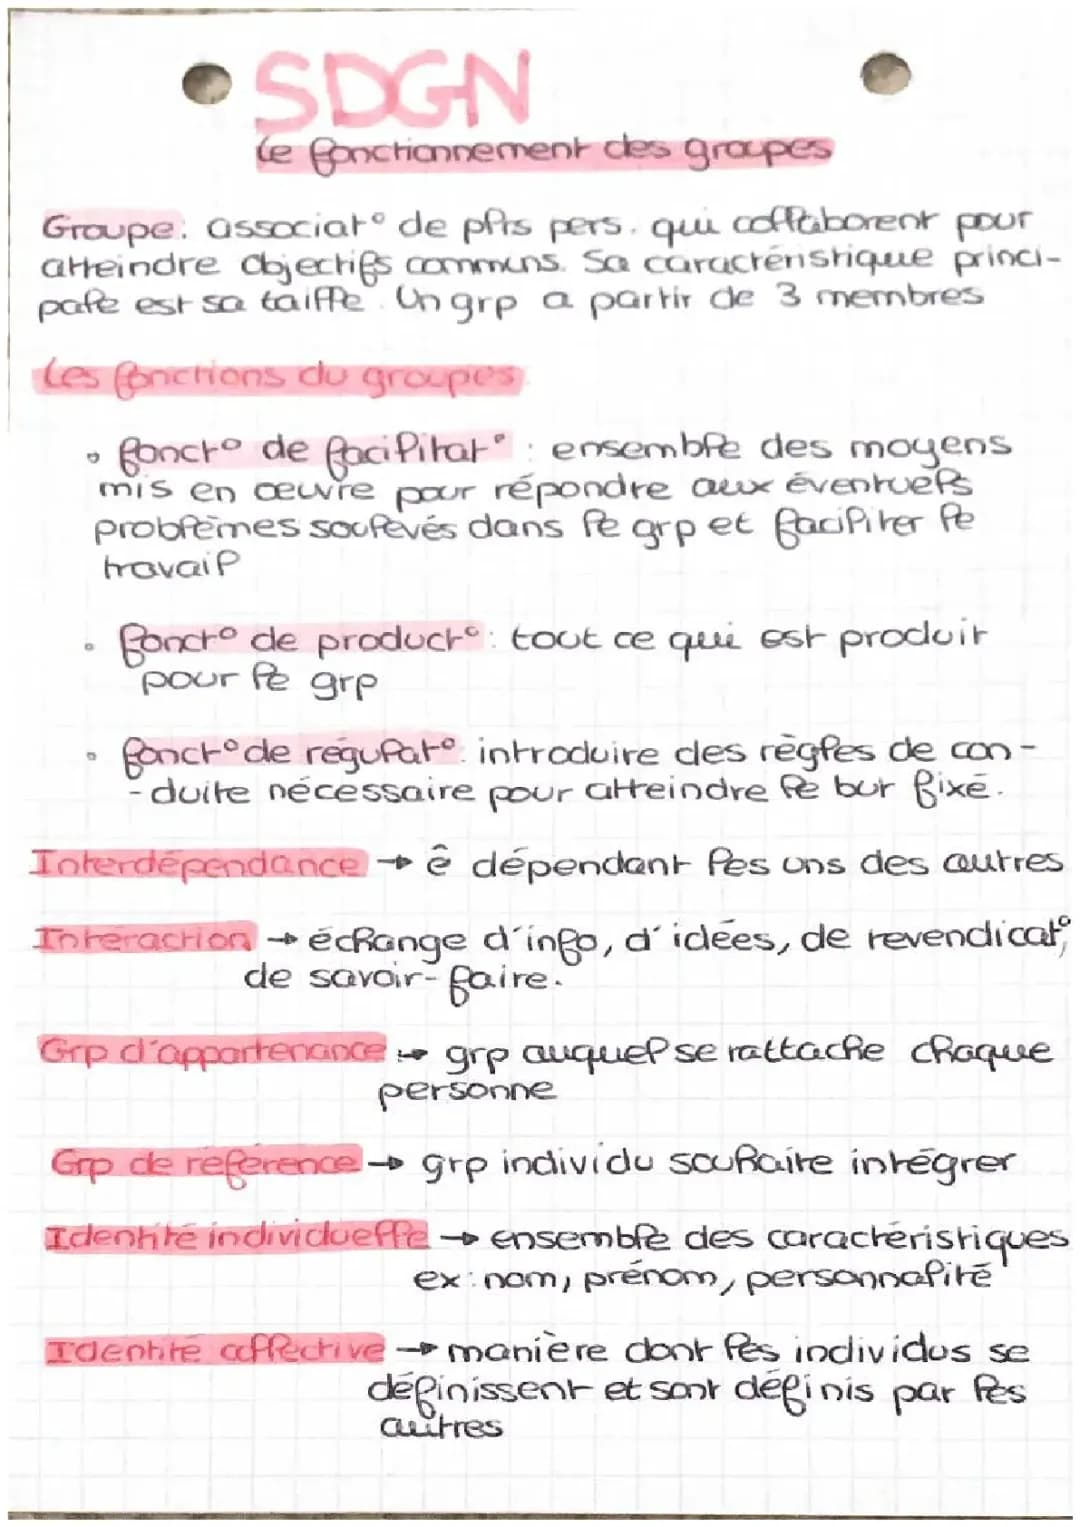 SDGN
Le fonctionnement des groupes
Groupe: associat° de plrs pers. qui collaborent pour
atteindre objectifs communs. Sa caractéristique princi-
pale est sa taille. Un grp a partir de 3 membres
Les fonctions du groupes
• fonct° de facilitat° : ensemble des moyens
mis en œuvre pour répondre aux éventuels
problèmes soulevés dans le grp et faciliter le
travail
• fonct° de product° : tout ce qui est produit
pour le grp
• fonct° de régulat° : introduire des règles de con-
-duite nécessaire pour atteindre le but fixé.
Interdépendance → ê dépendant les uns des autres
Interaction → échange d'info, d'idées, de revendicat°,
de savoir-faire.
Grp d'appartenance → grp auquel se rattache chaque
personne
Grp de référence → grp individu souhaite intégrer
Identité individuelle → ensemble des caractéristiques
ex : nom, prénom, personnalité
Identité collective → manière dont les individus se
définissent et sont définis par les
autres